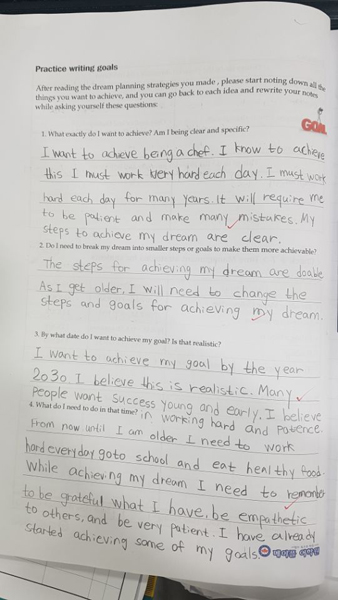 Practice writing goals
After reading the dream planning strategies you made , please start noting down all the
things you want to achieve, and you can go back to each idea and rewrite your notes
while asking yourself these questions:
GOAL
1. What exactly do I want to achieve? Am I being clear and specific?
I want to achieve being a chef. I know to achieve
this I must work very hard each day. I must work
hard each day for many years. It will require me
to be patient and make many mistakes. My
steps to achieve my dream are clear.
2. Do I need to break my dream into smaller steps or goals to make them more achievable?
The steps for achieving my dream are doable
As I get older. I will need to change the
steps and goals for achieving my dream.
3. By what date do I want to achieve my goal? Is that realistic?
I want to achieve my goal by the year
2030 I believe this is realistic. Many
people want success young and early. I believe
in working hard and patience.
4. What do I need to do in that time?
From now until I am older I need to work
hard everyday goto school and eat healthy food.
While achieving my dream I need to remember
to be grateful what I have, be empathetic
to others, and be very patient. I have already
started achieving some of my goals.